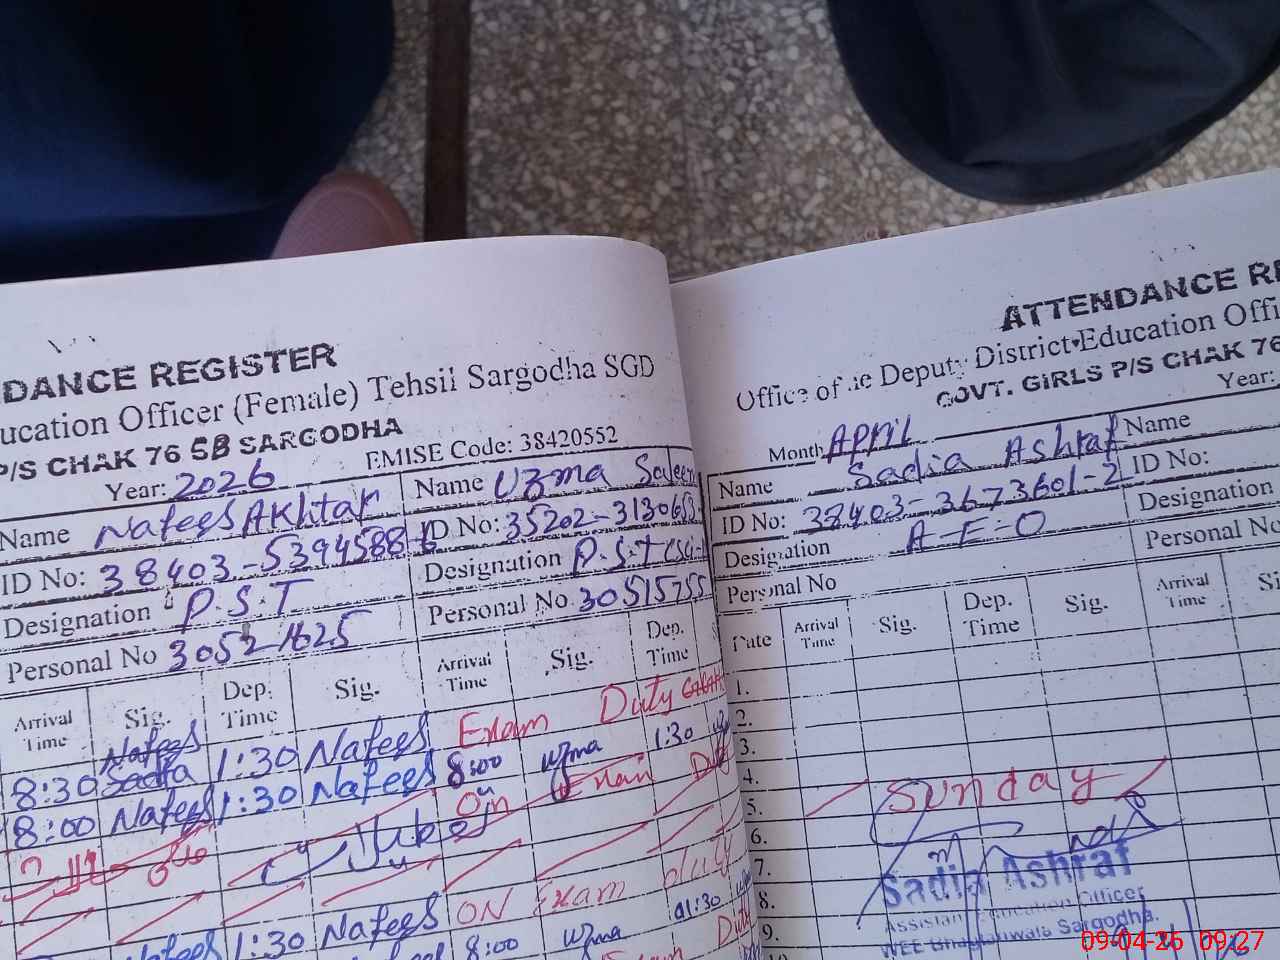 DANCE REGISTER
ucation Officer (Female) Tehsil Sargodha SGD
P/S CHAK 76 SB SARGODHA
EMISE Code: 38420552
Year: 2026
Name Nafees Akhtar
Name Uzma Saleem
ID No: 38403-5394588-6
ID No: 35202-3130653-
Designation P.S.T
Designation P.S.T
Personal No 30521625
Personal No 30515755
Arrival Time Sig. Dep. Time Sig. Arrival Time Sig. Dep. Time
8:30 Nafees Sadia 1:30 Nafees Exam Duty
8:00 Nafees 1:30 Nafees 8:00 Uzma 1:30
On Exam
1:30 Nafees ON Exam duty
8:00 Uzma 01:30
ATTENDANCE RE
Office of the Deputy District Education Offi
GOVT. GIRLS P/S CHAK 76
Year:
Month April
Name Sadia Ashraf
Name
ID No: 38403-3673601-2
ID No:
Designation A-E-O
Designation
Personal No
Personal No
Date Arrival Time Sig. Dep. Time Sig. Arrival Time
1.
2.
3.
4.
5. Sunday
6.
7.
8.
9.
Sadia Ashraf
Assistant Education Officer
WEE Bhagtanwala Sargodha.
09-04-26 09:27